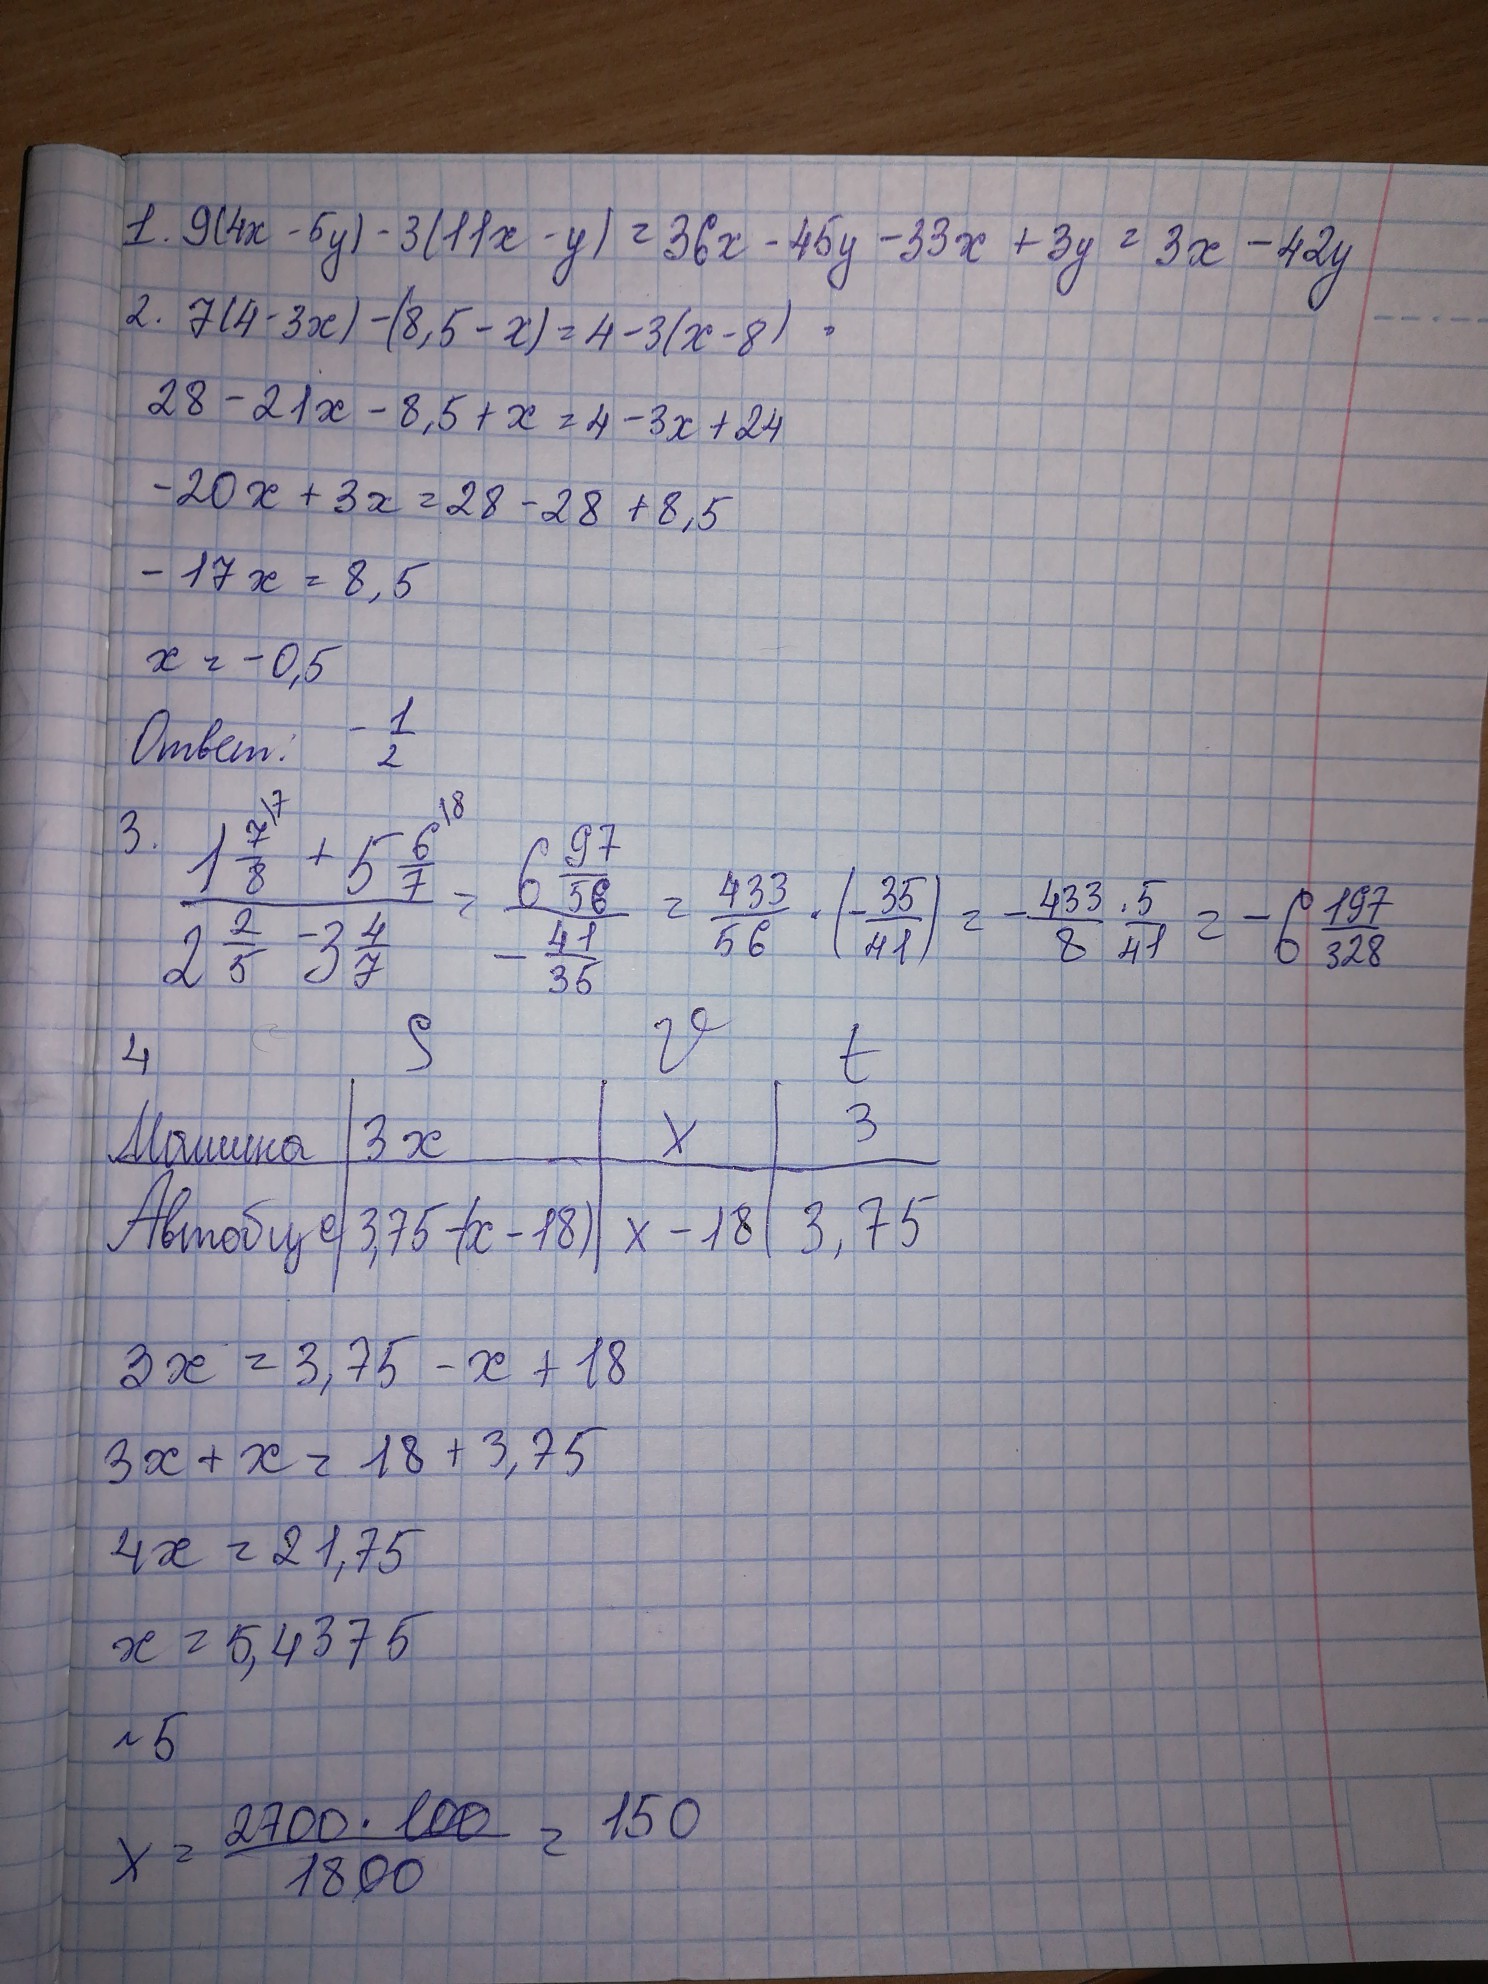 1. 9(4x - 5y) - 3(11x - y) = 36x - 45y - 33x + 3y = 3x - 42y
2. 7(4 - 3x) - (8,5 - x) = 4 - 3(x - 8)
28 - 21x - 8,5 + x = 4 - 3x + 24
-20x + 3x = 28 - 28 + 8,5
-17x = 8,5
x = -0,5
Ответ: -1/2
3. (1 7/8 \7 + 5 6/7 \8) / (2 2/5 - 3 4/7) = (6 97/56) / (-41/35) = 433/56 · (-35/41) = -433/8 · 5/41 = -6 197/328
4 S V t
Машина | 3x | x | 3
Автобус | 3,75-(x - 18) | x - 18 | 3,75
3x = 3,75 - x + 18
3x + x = 18 + 3,75
4x = 21,75
x = 5,4375
~5
x = (2700 · 100) / 1800 = 150